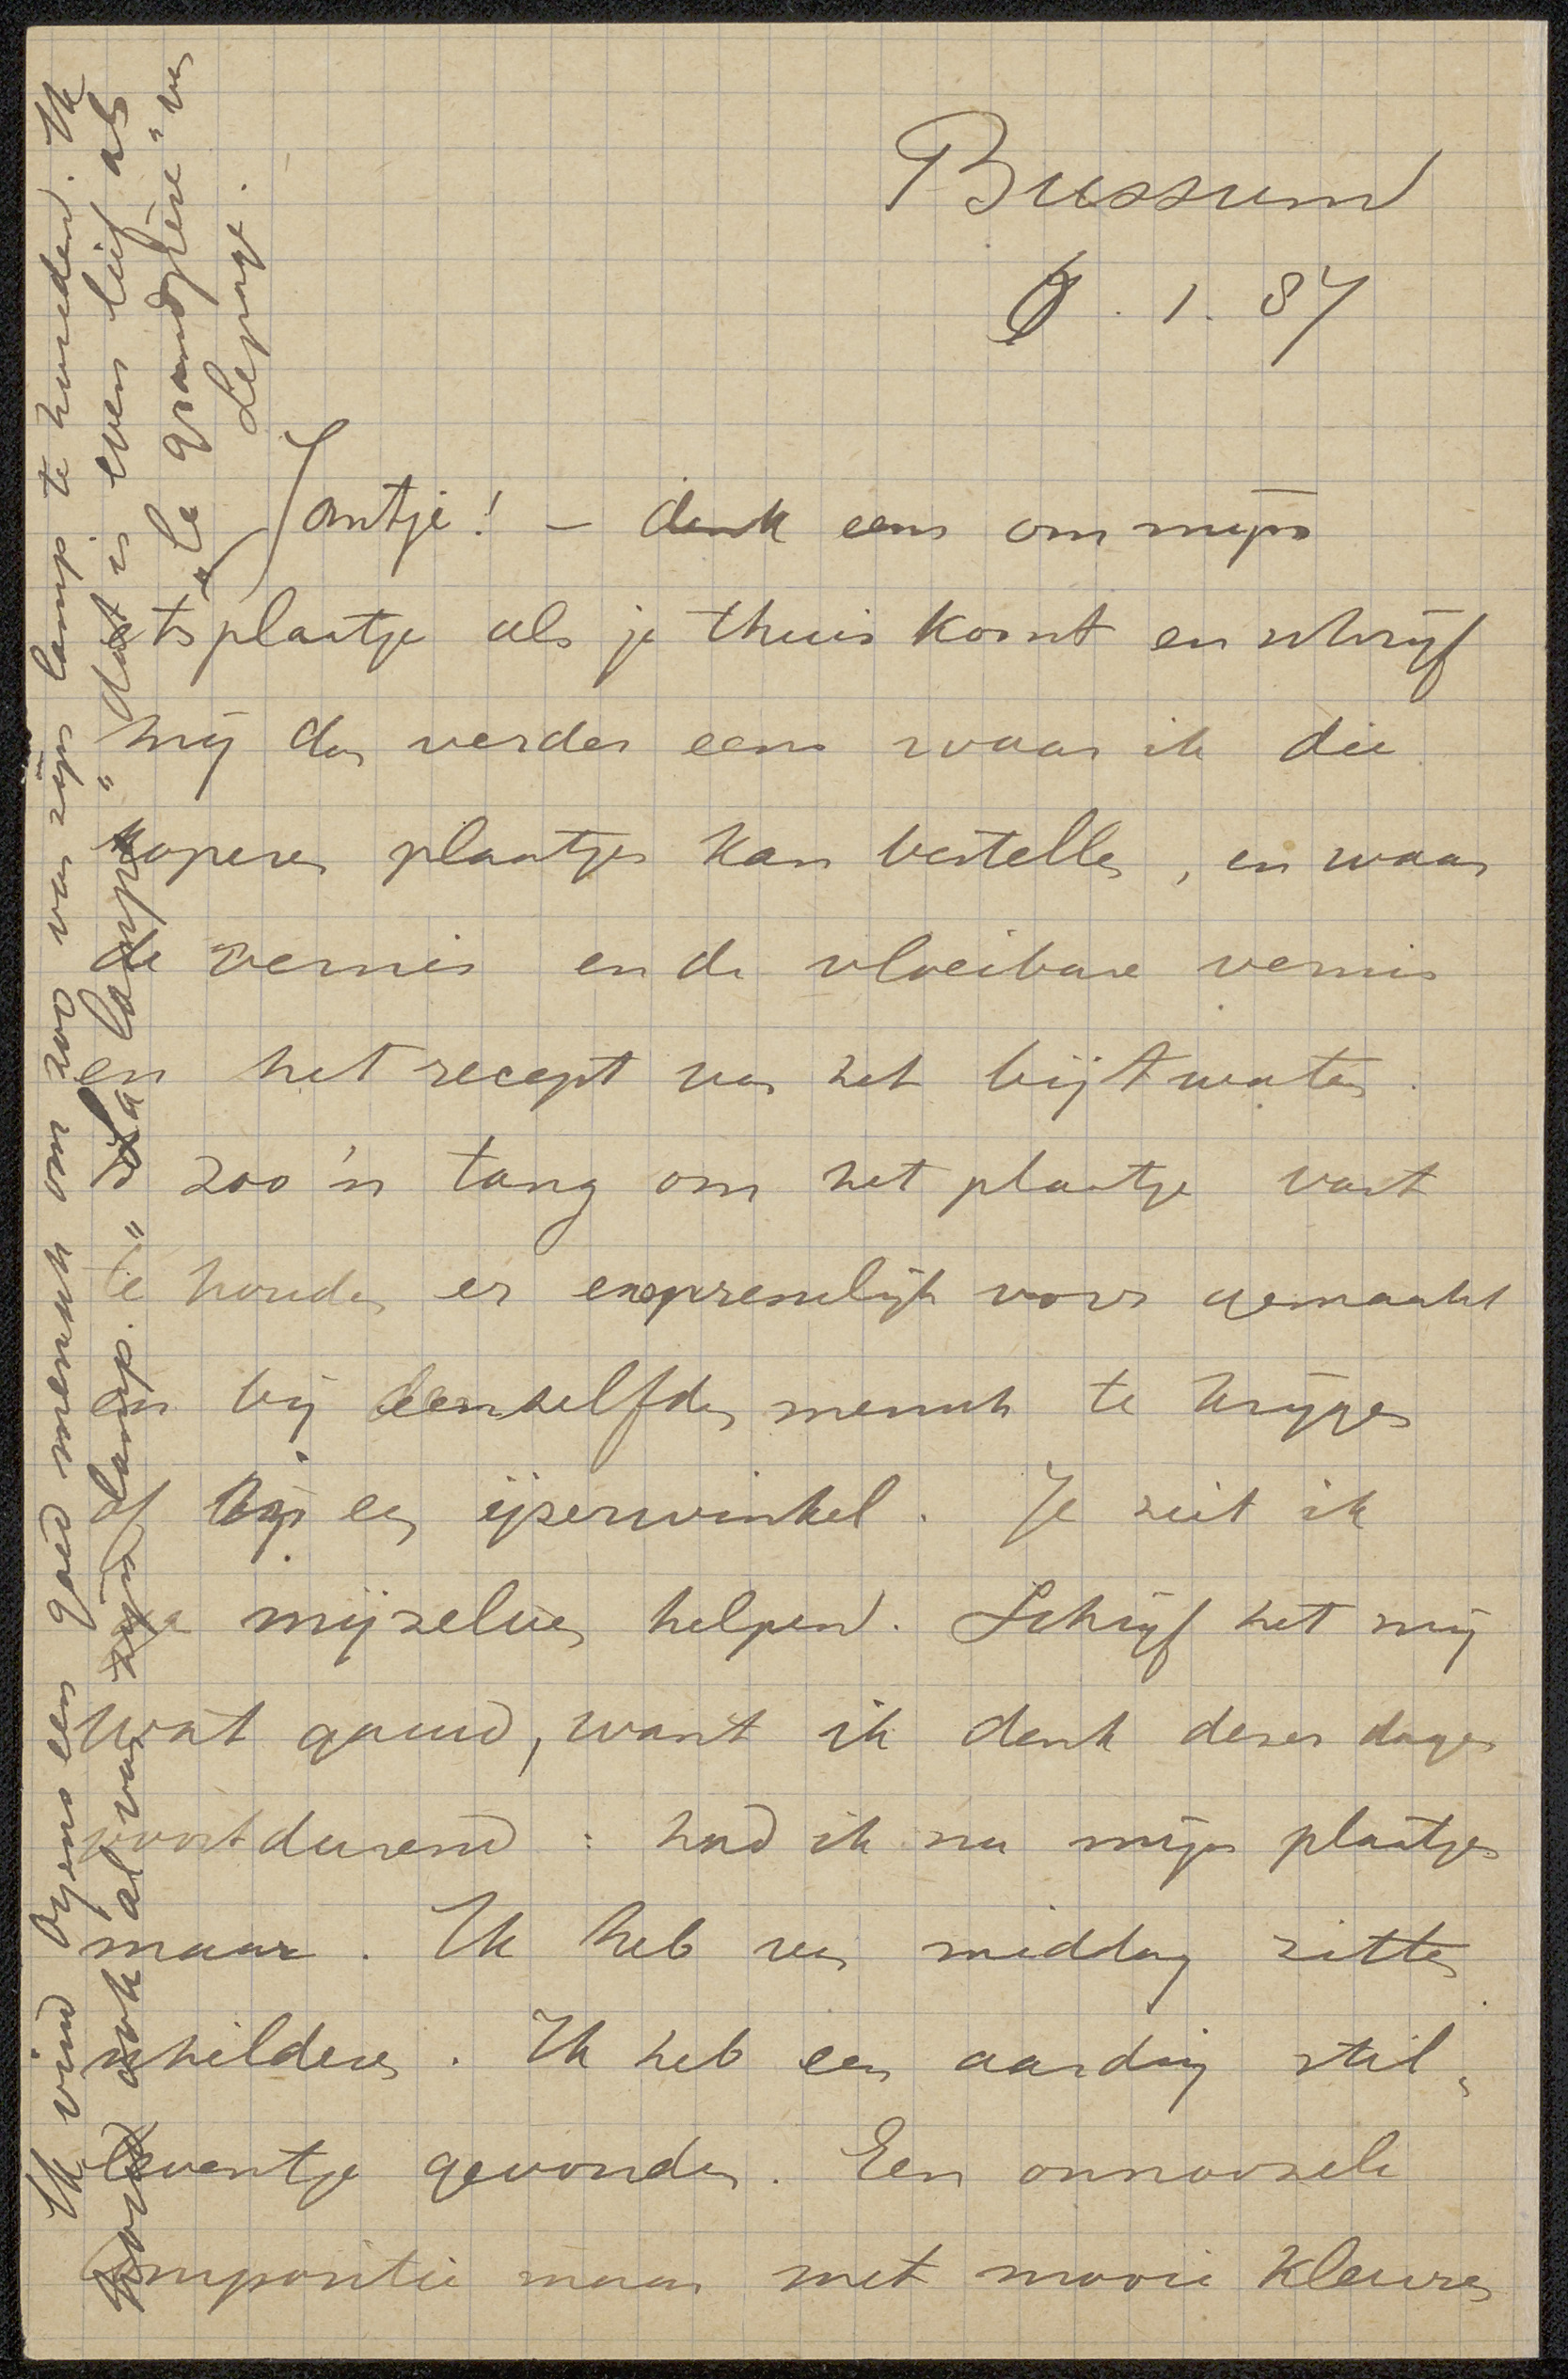 Bussum
9. 1. 87
Jantje! – denk eens om mijn
etsplaatje als je thuis komt en schrijf
mij dan verder eens waar ik die
koperen plaatjes kan bestellen, en waar
de vernis en de vloeibare vernis
en het recept van het bijtwater.
Is zoo'n tang om het plaatje vast
te houden er expresselijk voor gemaakt
en bij denzelfden mensch te krijgen
of bij een ijzerwinkel. Je ziet ik
ga mijzelven helpen. Schrijf het mij
wat gauw, want ik denk dezer dagen
voortdurend: had ik nu mijn plaatjes
maar. Ik heb van middag zitten
schilderen. Ik heb een aardig stil-
leventje gevonden. Een onnoozele
compositie maar met mooie kleuren
Ik vind Oyens een goed mensch om zoo van zijn lamp te houden. Ik
houd ook al van mijn lamp. "La lampe" dat is even lief als
"Le grandpère" van
Lepage.